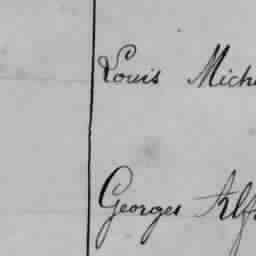 Louis Miche
Georges Alf